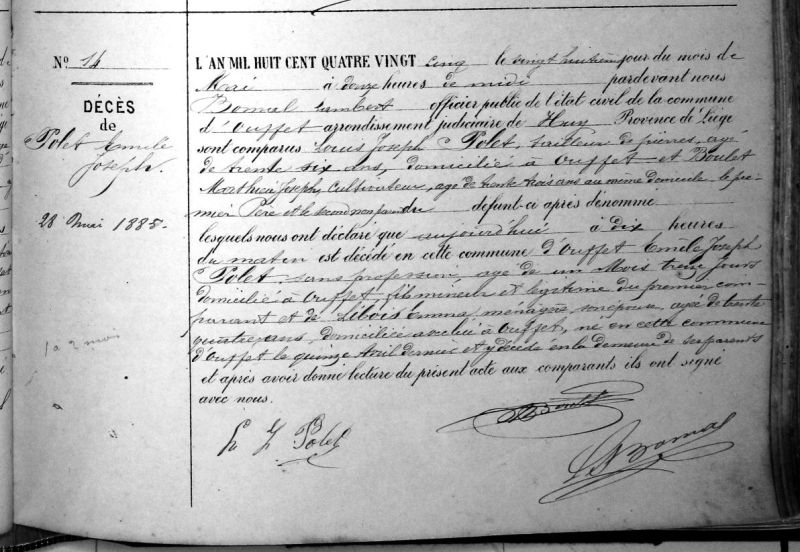 N° 14
DÉCÈS
de
Polet Emile
Joseph.
28 Mai 1885.
1 a 2 mois
L'AN MIL HUIT CENT QUATRE VINGT cinq le vingt huitième jour du mois de
Mai à douze heures de midi pardevant nous
Bomal Lambert officier public de l'état civil de la commune
d'Ouffet arrondissement judiciaire de Huy Province de Liège
sont comparus Louis Joseph Polet, tailleur de pierres, agé
de trente six ans, domicilié à Ouffet et Boulet
Mathieu Joseph, cultivateur, age de trente trois ans au même domicile le pre-
mier Pere et le second non parent du defunt ci après dénommé
lesquels nous ont déclaré que aujourd'hui à dix heures
du matin est décédé en cette commune d'Ouffet Emile Joseph
Polet sans profession, agé de un Mois treize jours
domicilié à Ouffet, fils mineur et légitime du premier com-
parant et de Libois Emma, ménagère, son épouse, agée de trente
quatre ans, domiciliée avec lui à Ouffet, né en cette commune
d'Ouffet le quinze Avril dernier et y décédé en la demeure de ses parents
et après avoir donné lecture du présent acte aux comparants ils ont signé
avec nous.
Boulet
L J Polet
L Bomal